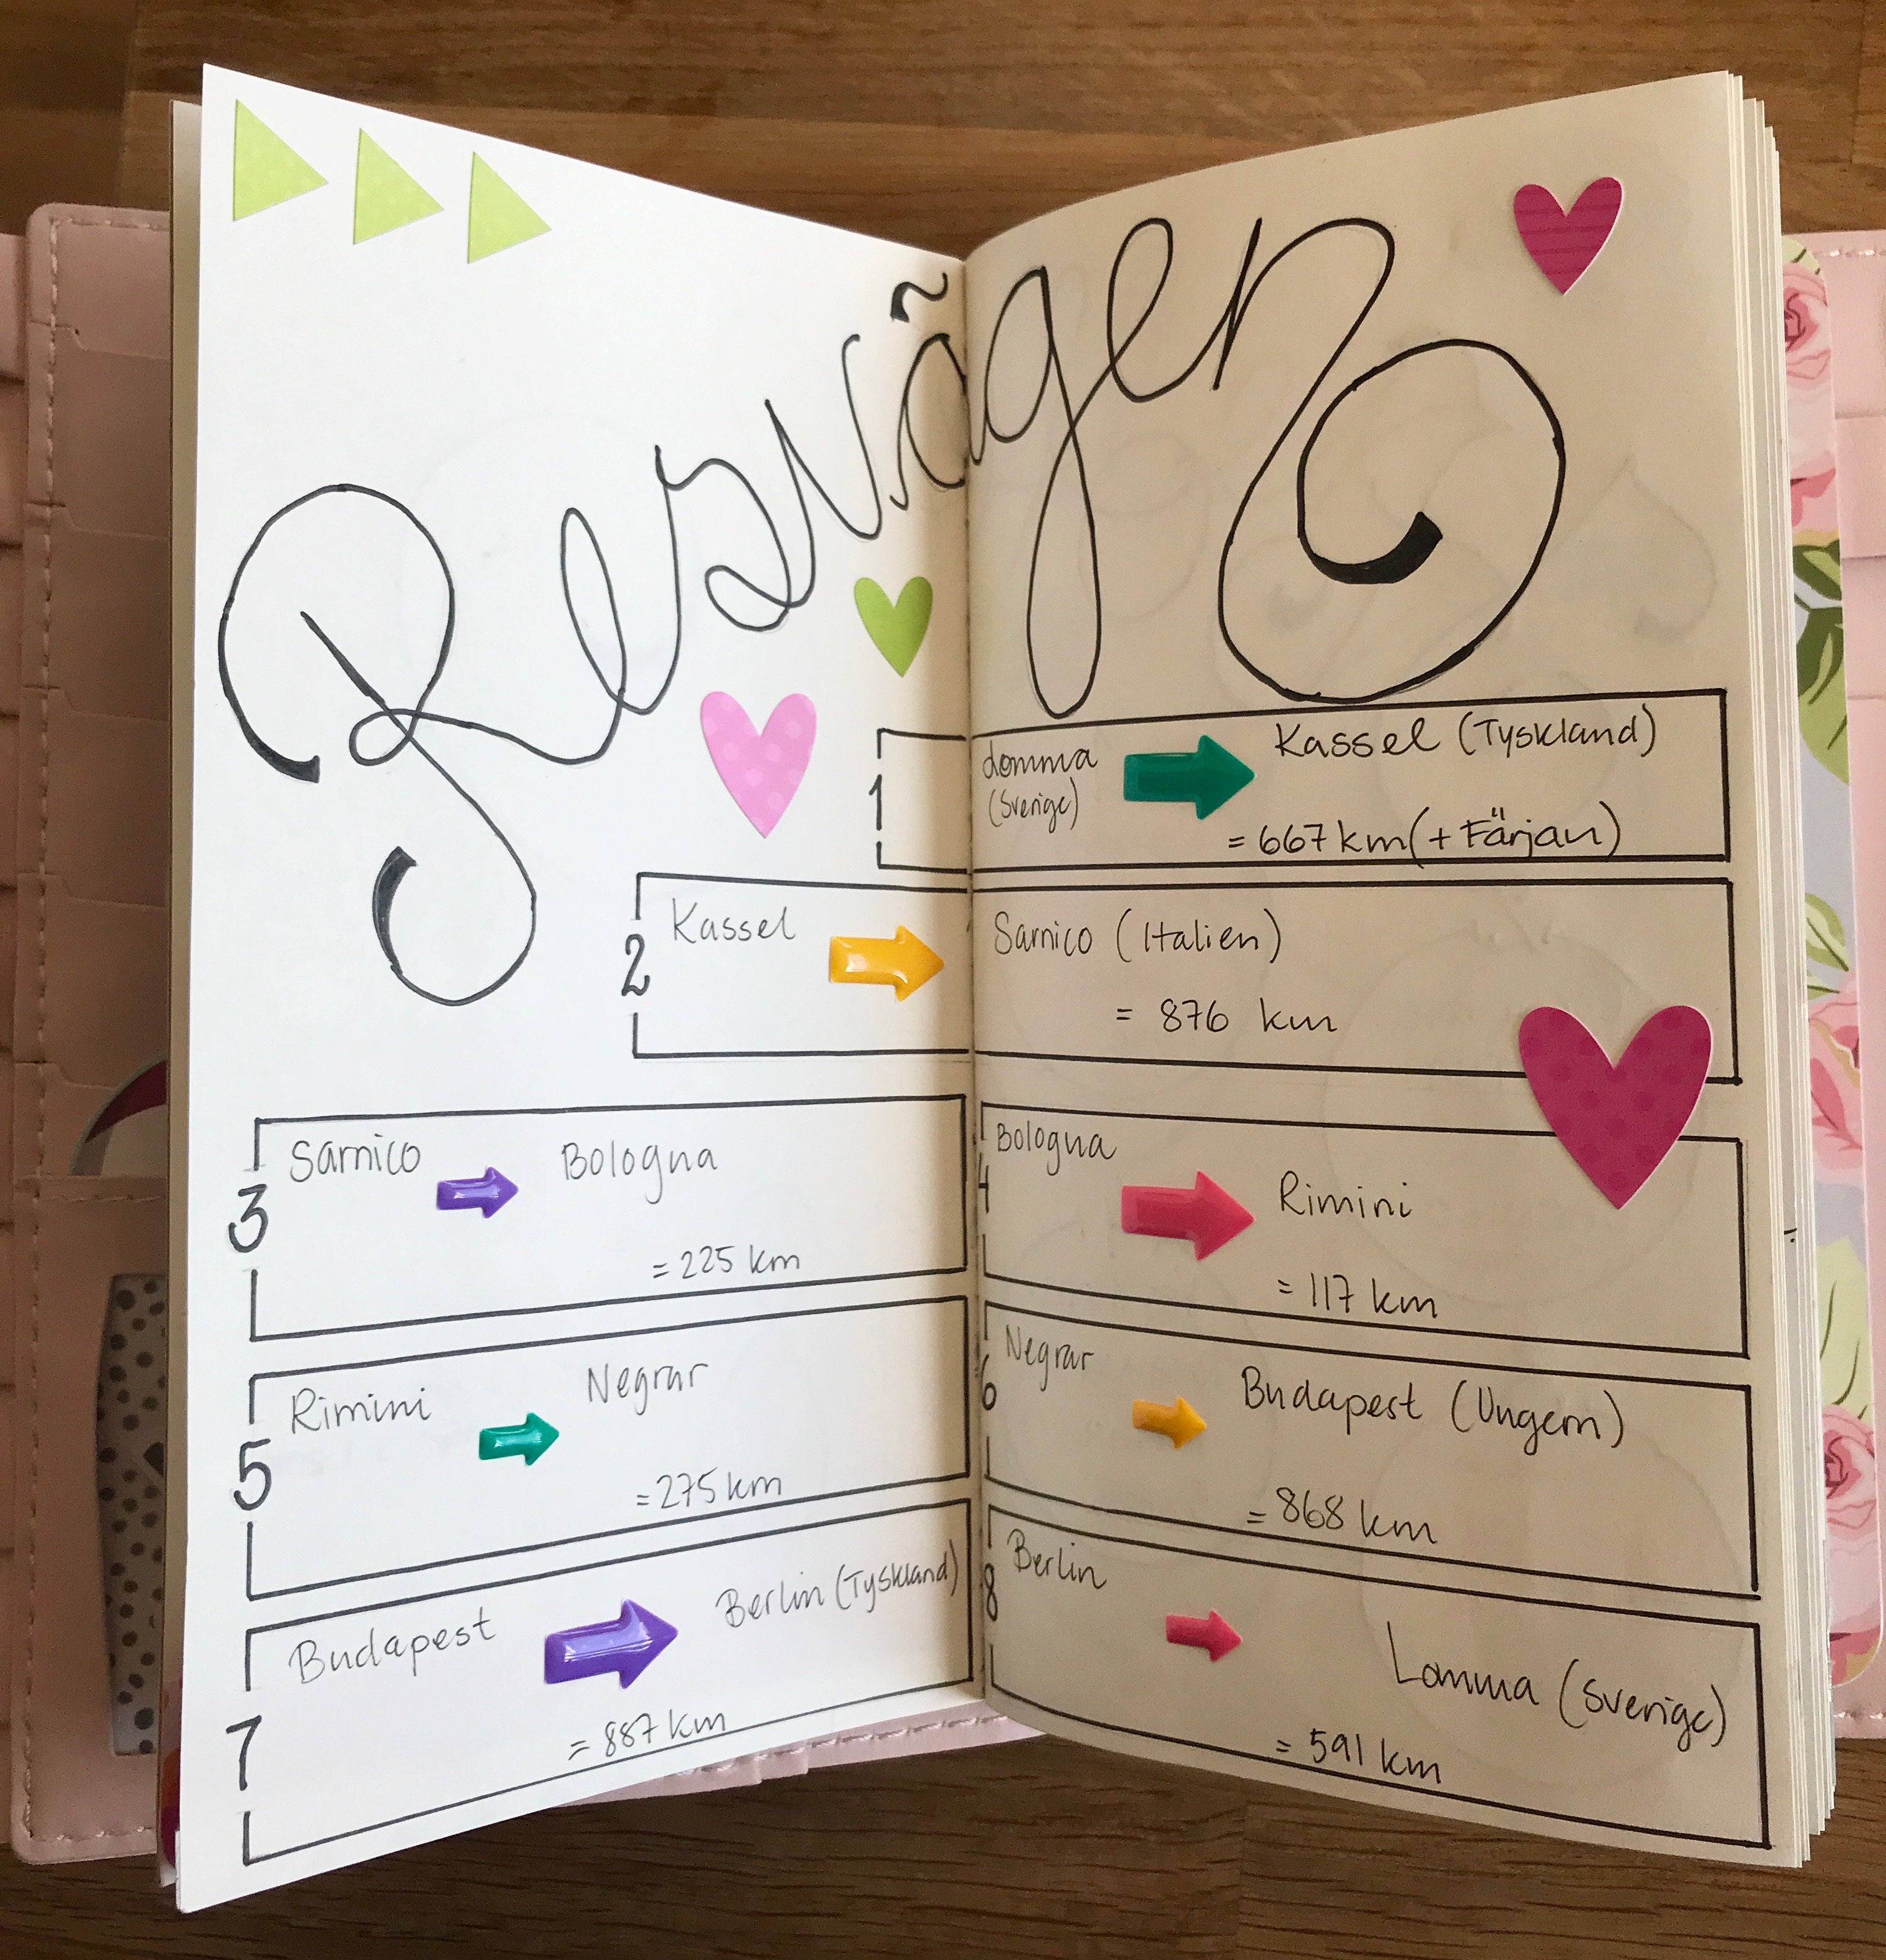 Resvägen
1
Lomma
(Sverige)
Kassel (Tyskland)
= 667 km (+ Färjan)
2
Kassel
Sarnico (Italien)
= 876 km
3
Sarnico
Bologna
= 225 km
4
Bologna
Rimini
= 117 km
5
Rimini
Negrar
= 275 km
6
Negrar
Budapest (Ungern)
= 868 km
7
Budapest
Berlin (Tyskland)
= 887 km
8
Berlin
Lomma (Sverige)
= 591 km